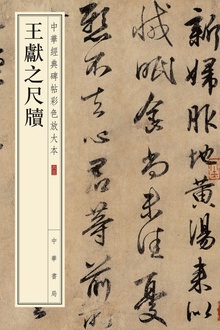 中華經典碑帖彩色放大本
王獻之尺牘
中華書局
新婦服地黃湯來似
減眠食尚未佳憂
懸不去心君等前